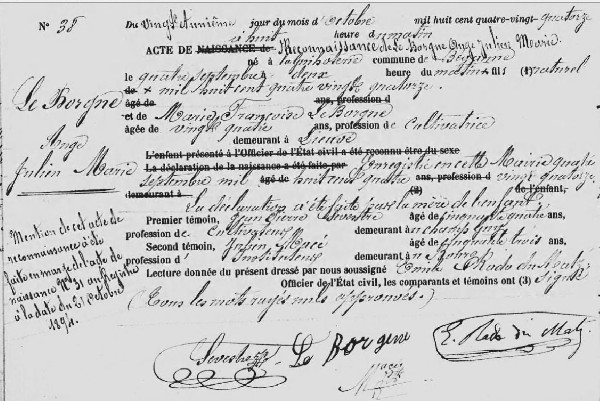 N° 38
Du vingt et unième jour du mois d'octobre mil huit cent quatre-vingt-quatorze
à huit heure du matin
ACTE DE NAISSANCE de Reconnaissance de Le Borgne Ange Julien Marie
né à commune de
le quatre septembre à deux heure du matin fils (1) naturel
de mil huit cent quatre vingt quatorze.
âgé de ans, profession d
et de Marie Françoise Le Borgne
âgée de vingt quatre ans, profession de Cultivatrice
demeurant à
L'enfant présenté à l'Officier de l'État civil a été reconnu être du sexe
La déclaration de la naissance a été faite par Enregistré en cette Mairie quatre
septembre mil âgé de huit cent quatre ans, profession d vingt quatorze
demeurant à (2) de l'enfant,
La déclaration a été faite par la mère de l'enfant
Premier témoin, Jean Pierre Sevestre âgé de cinquante quatre ans,
profession de Cultivateur demeurant au champ
Second témoin, Julien Macé âgé de cinquante trois ans,
profession d' Instituteur demeurant au Bourg
Lecture donnée du présent dressé par nous soussigné Emile Rado du Matz
Officier de l'État civil, les comparants et témoins ont (3) signé
(Tous les mots rayés nuls approuvés.)
Le Borgne
Ange
Julien Marie
Mention de cet acte de
reconnaissance a été
faite en marge de l'acte de
naissance N° 31 au Registre
à la date du 21 octobre
1894.
Sevestre
Le Borgne
Macé
E. Rado du Matz